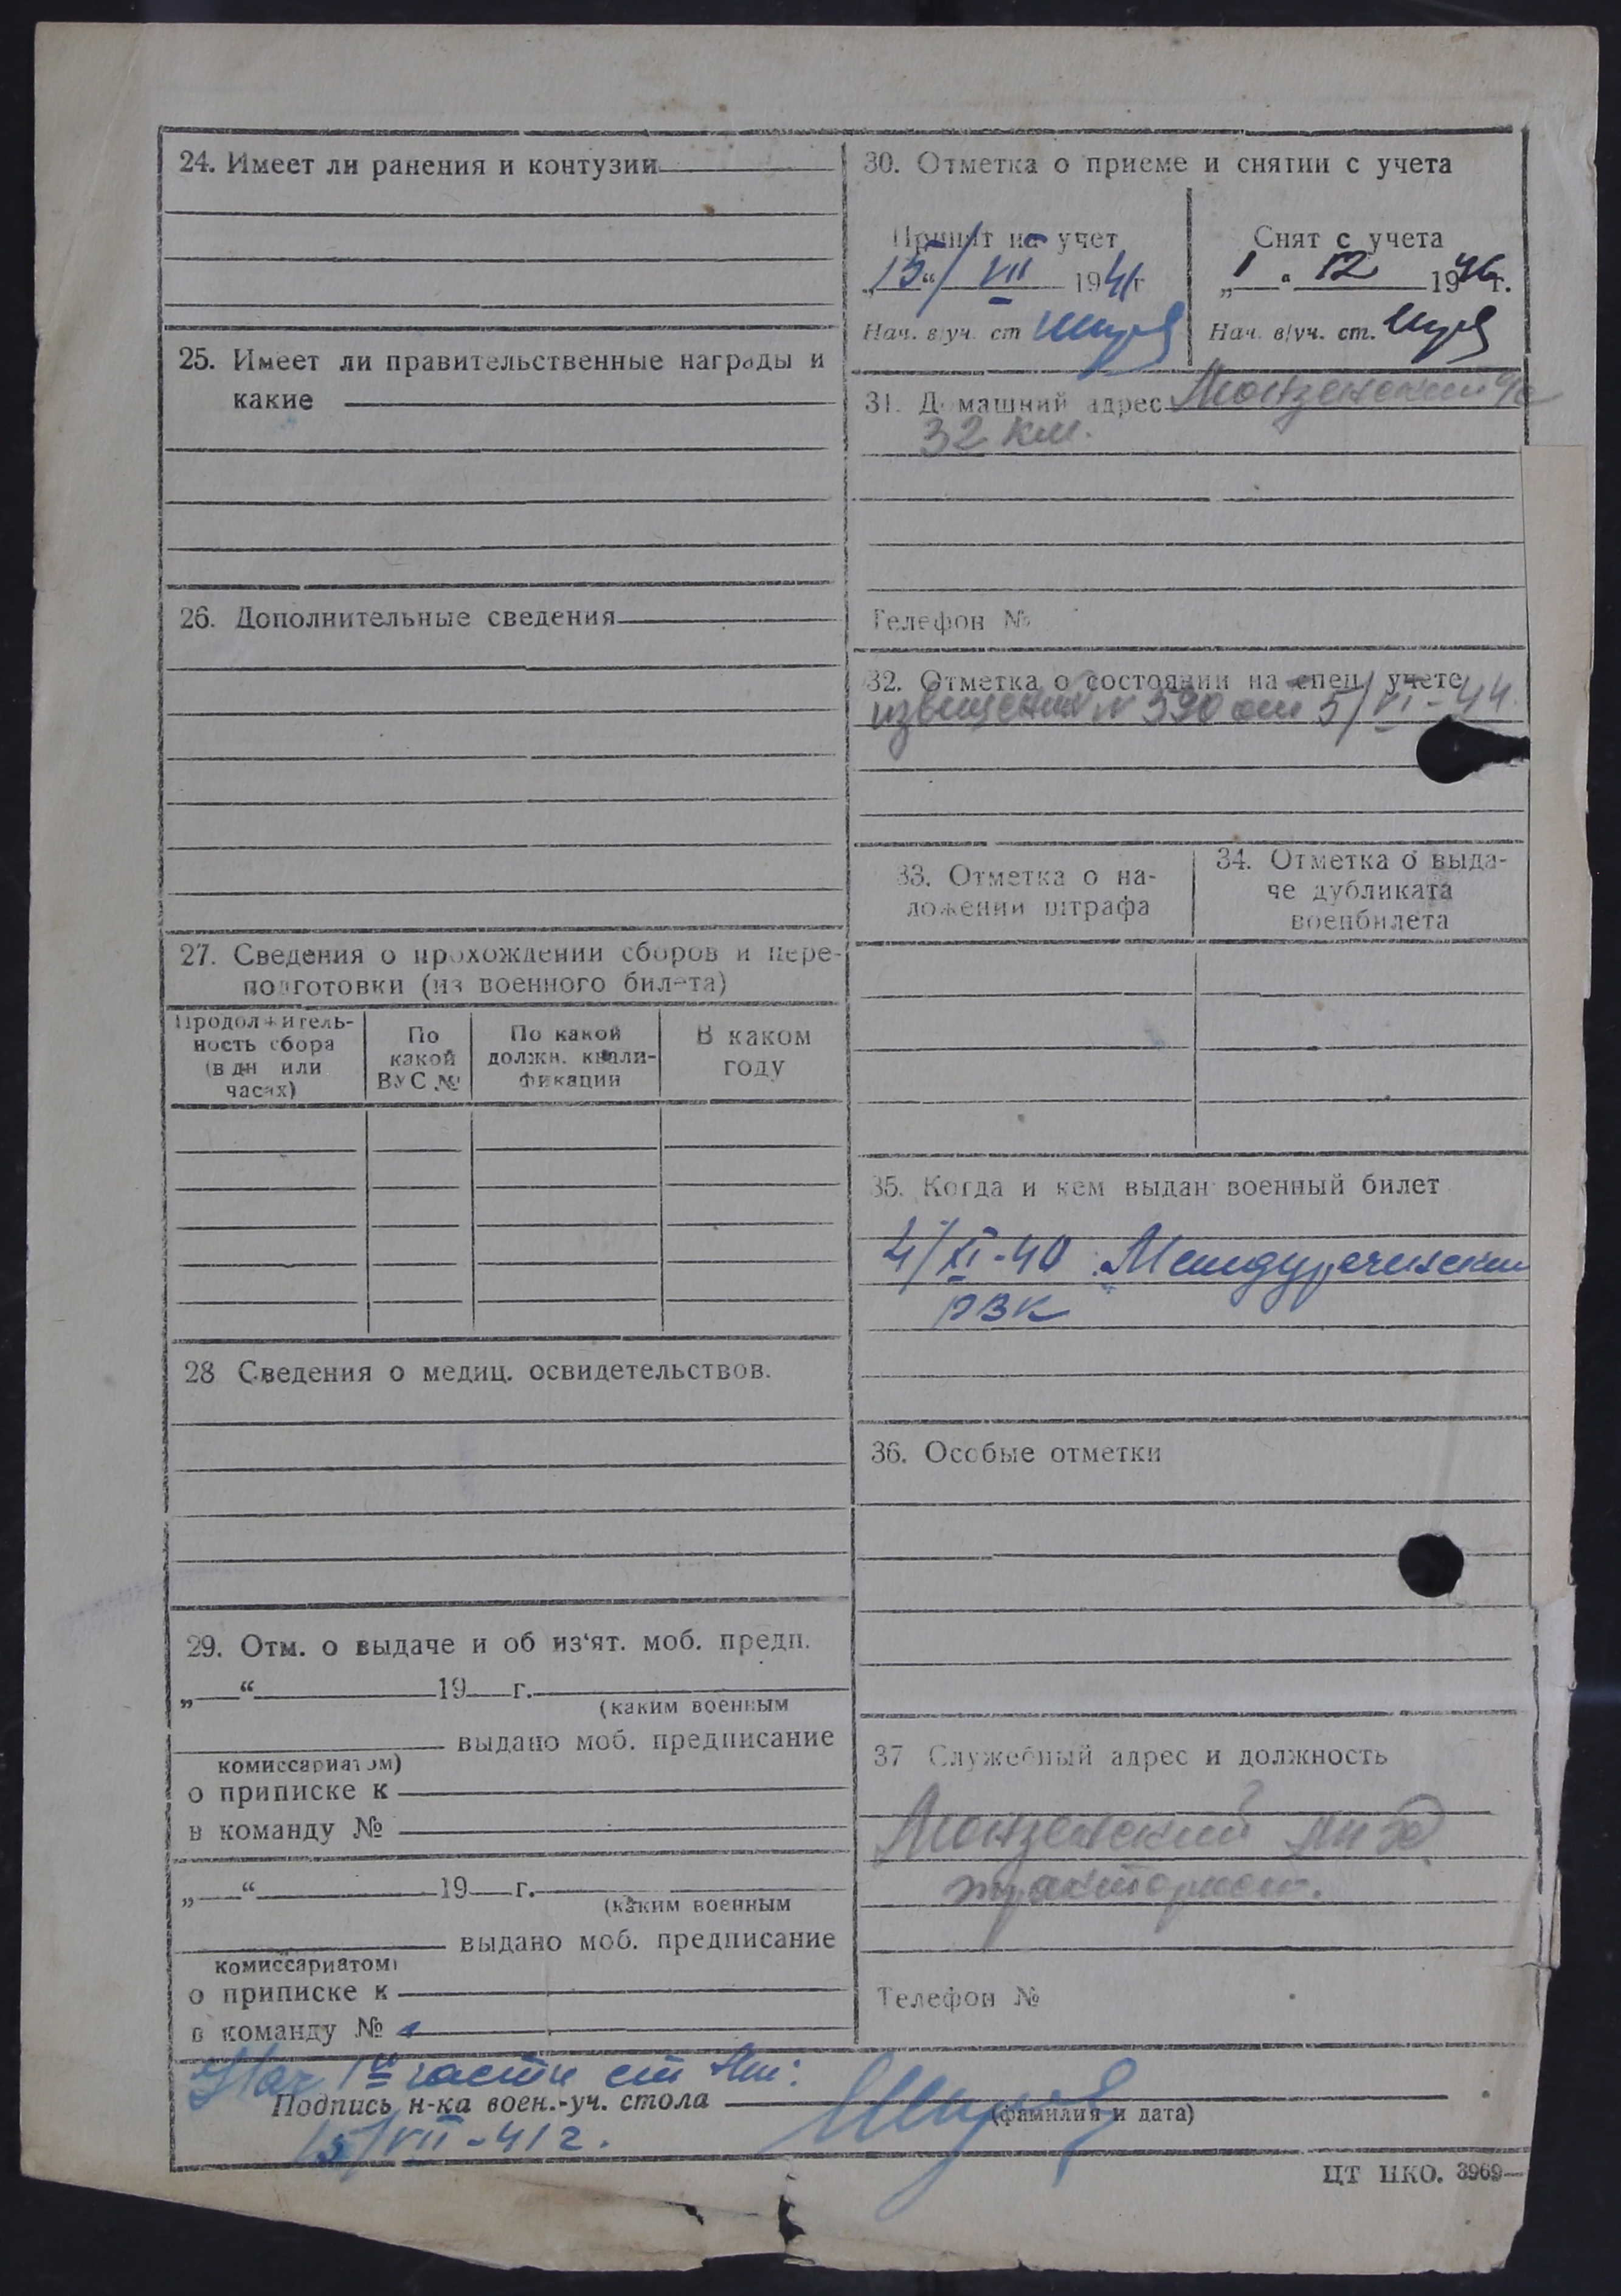 24. Имеет ли ранения и контузии
25. Имеет ли правительственные награды и
какие
26. Дополнительные сведения
27. Сведения о прохождении сборов и пере-
подготовки (из военного билета)
Продолжитель-
ность сбора
(в дн или
часах)
По
какой
ВУС №
По какой
должн. квали-
фикации
В каком
году
28 Сведения о медиц. освидетельствов.
29. Отм. о выдаче и об из‘ят. моб. предп.
„ “ 19 г.
(каким военным
выдано моб. предписание
комиссариатом)
о приписке к
в команду №
„ “ 19 г.
(каким военным
выдано моб. предписание
комиссариатом)
о приписке к
в команду №
30. Отметка о приеме и снятии с учета
Принят на учет
„15“/ VII 1941г
Нач. в/уч. ст
Снят с учета
„1“ 12 1946г.
Нач. в/уч. ст.
31. Домашний адрес Монзенский
32 км.
Телефон №
32. Отметка о состоянии на спец. учете
извещение № 590 от 5/VI-44
33. Отметка о на-
ложении штрафа
34. Отметка о выда-
че дубликата
военбилета
35. Когда и кем выдан военный билет
4/XI-40 Междуреченским
РВК
36. Особые отметки
37 Служебный адрес и должность
Монзенский
тракторист.
Телефон №
Нач 1й части ст
Подпись н-ка воен.-уч. стола
(фамилия и дата)
15/VII-41г.
ЦТ НКО. 3969—